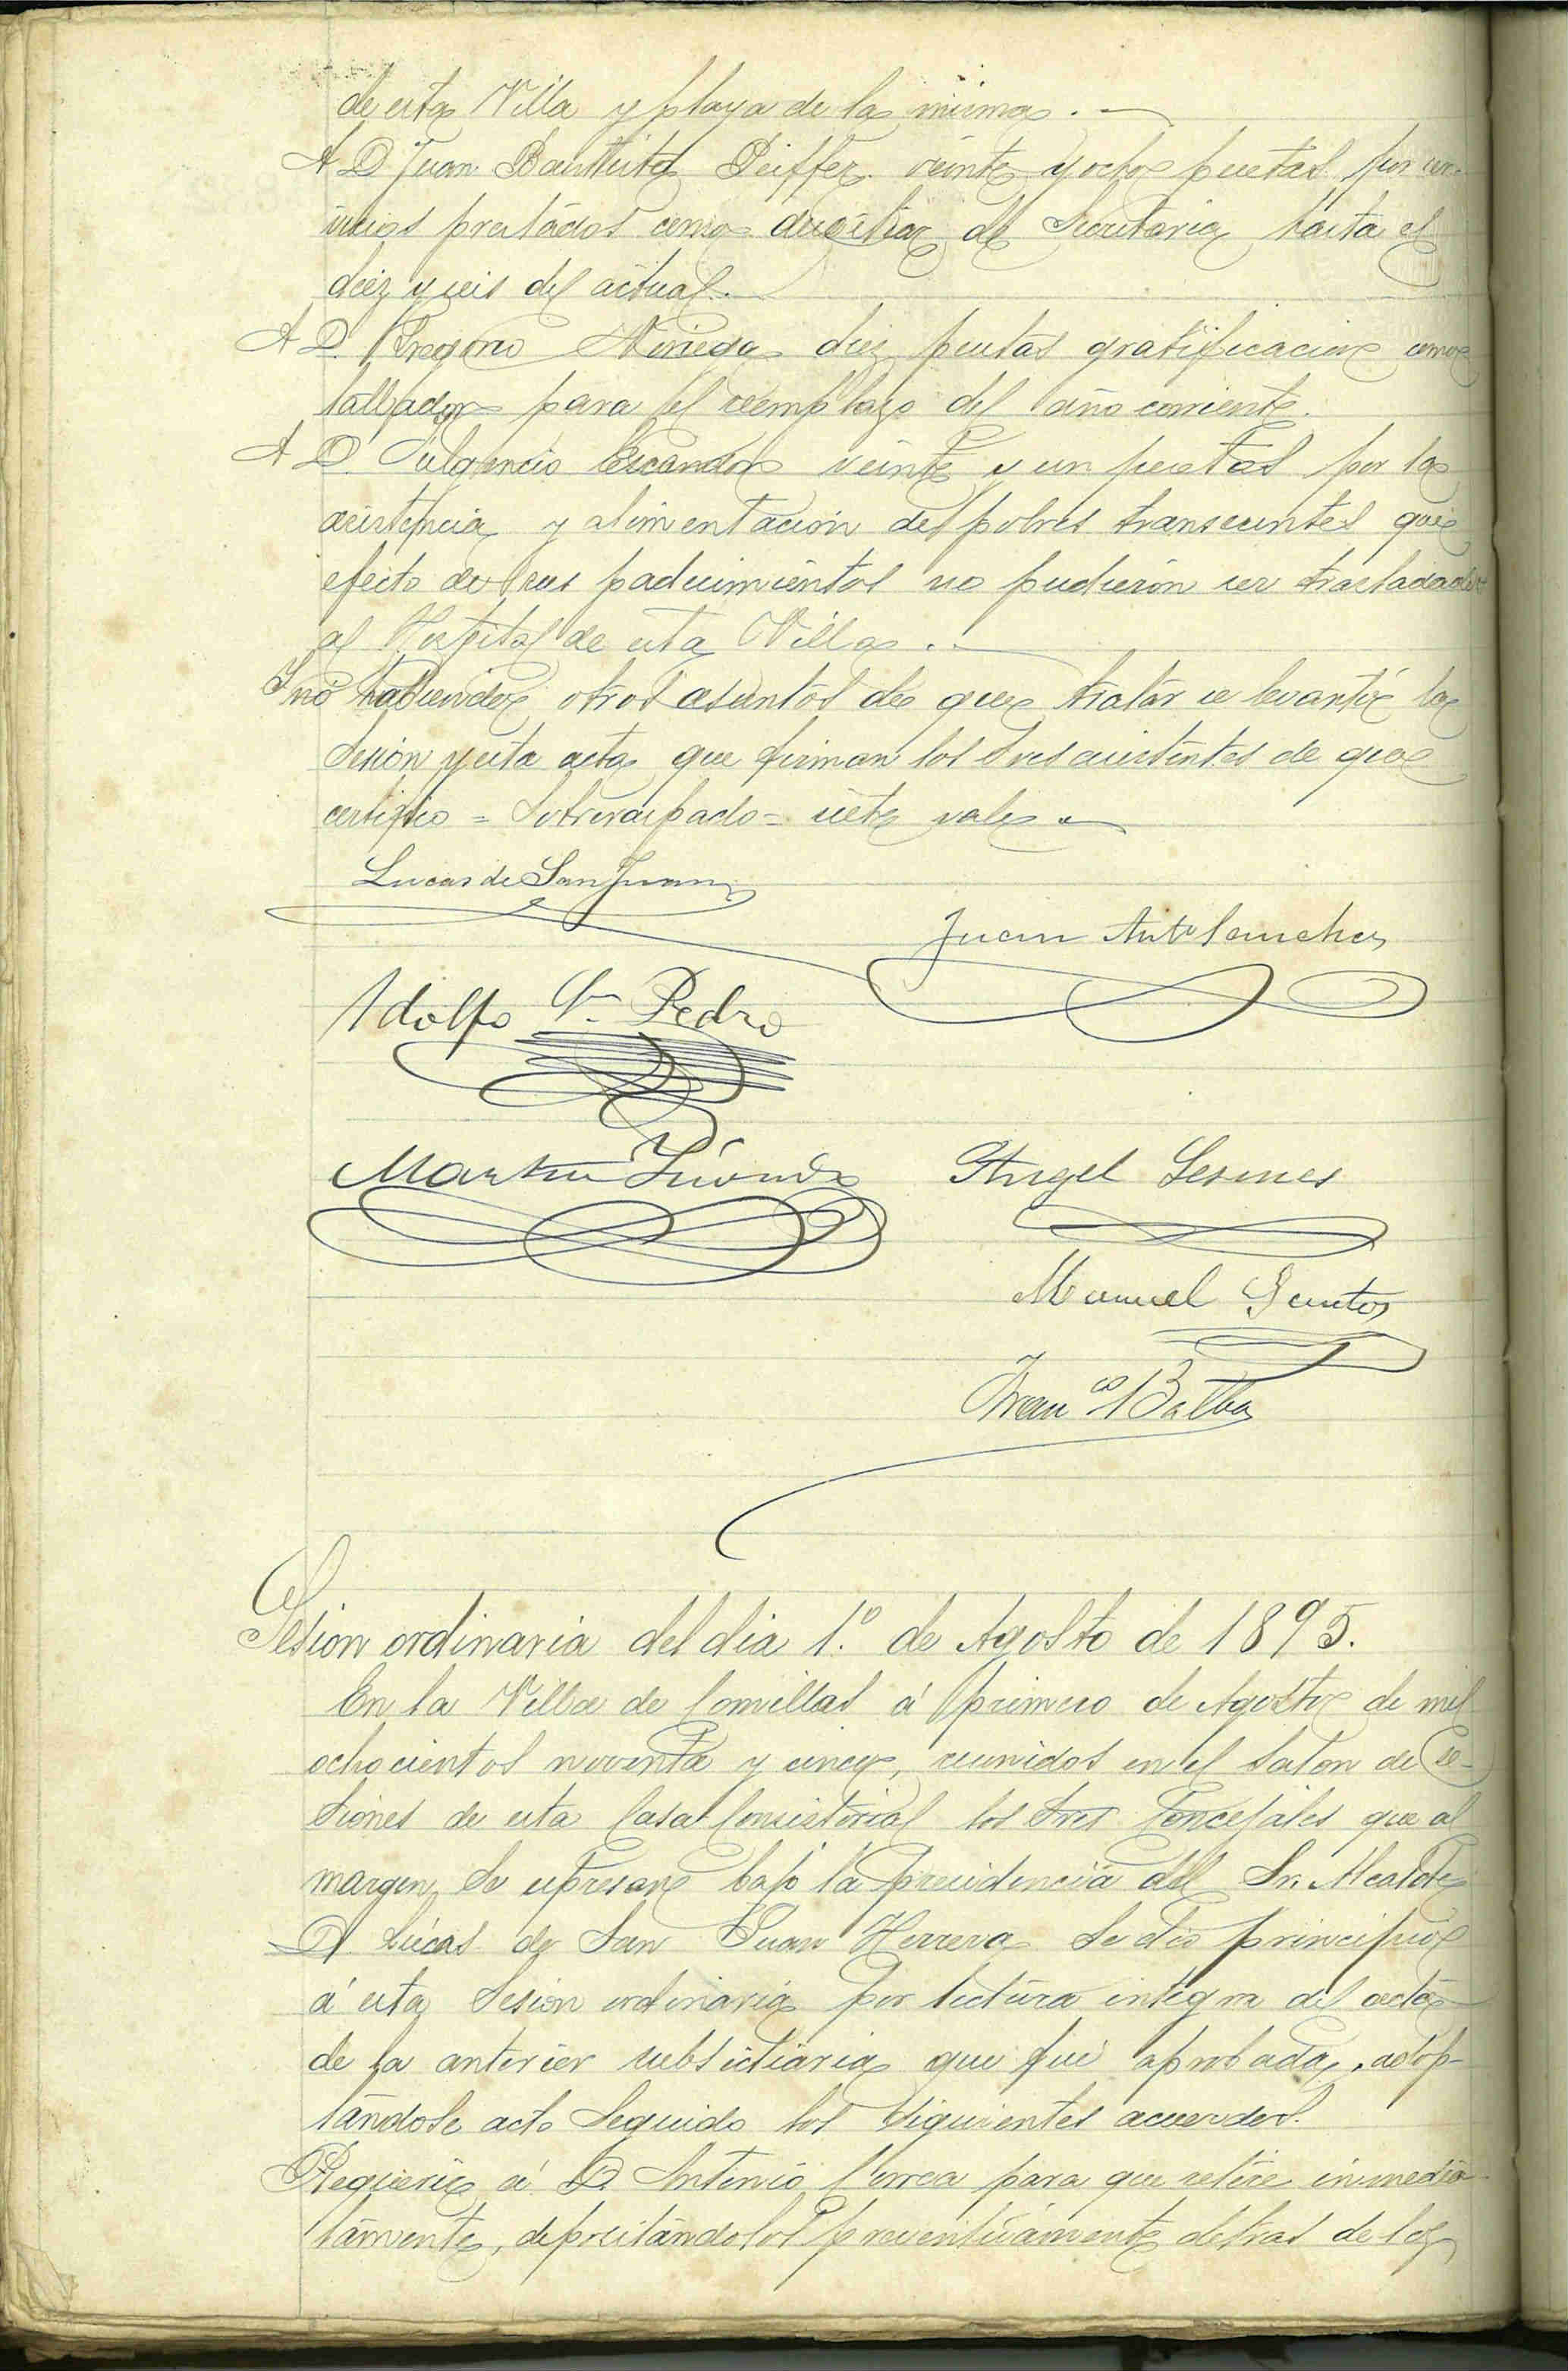 de esta Villa y playa de la misma.
A D. Juan Bautista Peiffer veinte y ocho pesetas por ser-
vicios prestados como auxiliar de Secretaría hasta el
diez y seis del actual.
A D. Gregorio Noriega diez pesetas gratificacion como
tallador para el reemplazo del año corriente.
A D. Fulgencio Escandon veinte y un pesetas por la
asistencia y alimentación de pobres transeuntes que
efecto de sus padecimientos no pudieron ser trasladados
al Hospital de esta Villa.
Y no habiendo otros asuntos de que tratar se levantó la
Sesión y esta acta que firman los Sres asistentes de que
certifico = Sobreraspado = siete vale.
Lucas de San Juan
Juan Antº Sanchez
Adolfo Pedro
Martin
Angel Lesmes
Manuel Santos
Franco Balbas
Sesion ordinaria del dia 1.º de Agosto de 1895.
En la Villa de Comillas á primero de Agosto de mil
ochocientos noventa y cinco, reunidos en el Salon de Se-
siones de esta Casa Consistorial los Sres Concejales que al
margen se expresan bajo la presidencia del Sr. Alcalde
D. Lúcas de San Juan Herrera se dió principio
á esta Sesión ordinaria por lectura integra del acta
de la anterior subsidiaria que fué aprobada, adop-
tándose acto seguido los siguientes acuerdos.
Requerir á D. Antonio Correa para que retire inmedia-
tamente, depositándolos preventivamente detras de los